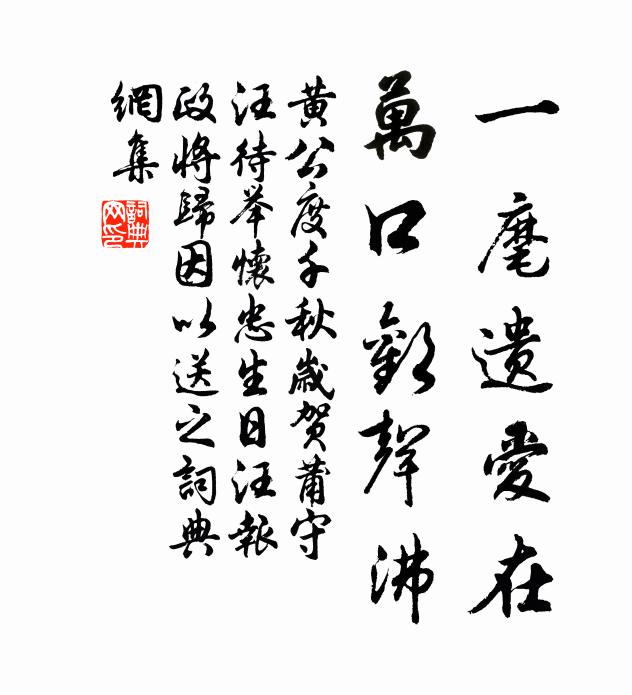 一麾遺愛在
萬口歡聲沸
黃公度千秋歲賀莆守
汪待举懷忠生日汪報
政將歸因以送之詞典
網集
詞典网印